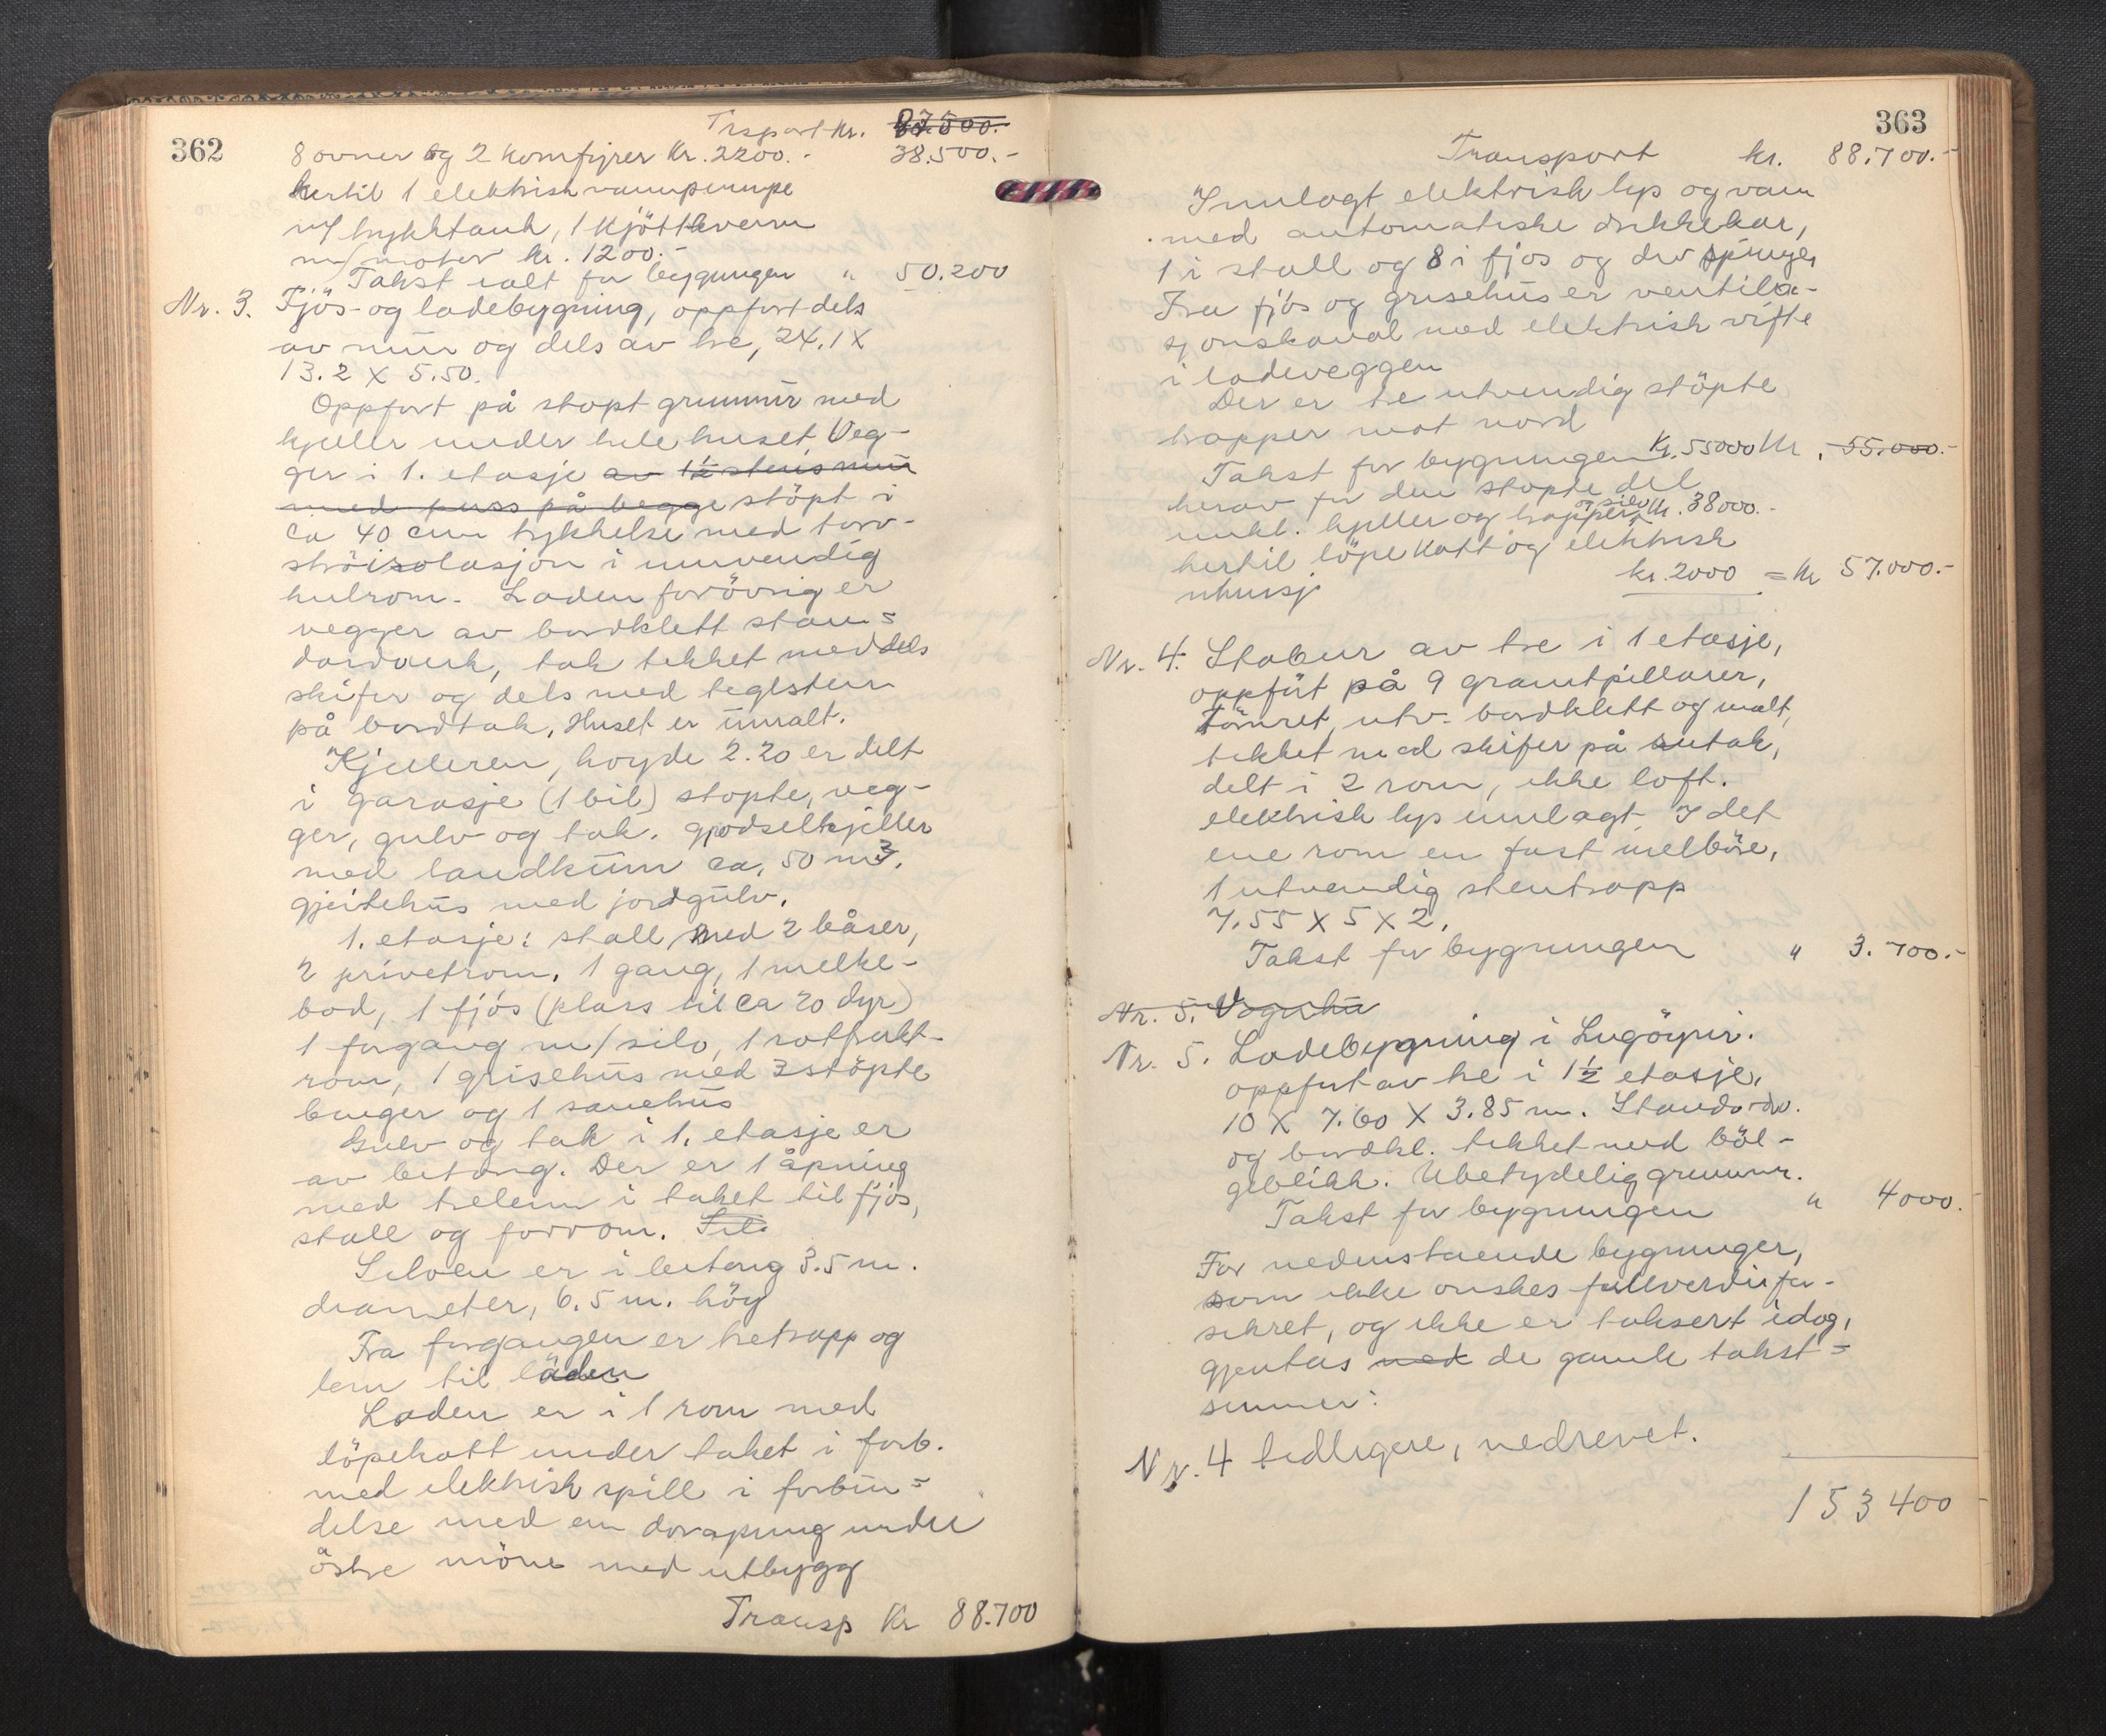 362
Trsport kr. 87.500.-
8 ovner og 2 komfyrer kr. 2200.- 38.500.-
hertil 1 elektrisk vannpumpe
m/ trykktank, 1 kjöttkvern
m/motor kr. 1200.-
Takst ialt for bygningen " 50.200
Nr. 3. Fjös- og ladebygning, oppfört dels
av mur og dels av tre, 24.1 X
13.2 X 5.50.
Oppfört på stöpt grunnmur med
kjeller under hele huset. Veg-
ger i 1. etasje av 1½ stens mur
med puss på begge stöpt i
ca 40 cm tykkelse med torv-
ströisolasjon i innvendig
hulrom. Laden forövrig er
vegger av bordklett stan=
dardverk, tak tekket med dels
skifer og dels med teglsten
på bordtak. Huset er umalt.
Kjelleren, höyde 2.20 er delt
i garasje (1 bil) stöpte, veg-
ger, gulv og tak. gjödselkjeller
med landkum ca. 50 m3.
gjeitehus med jordgulv.
1. etasje: stall med 2 båser,
2 privetrom, 1 gang, 1 melke-
bod, 1 fjös (plass til ca 20 dyr)
1 forgang m/silo, 1 rotfrukt-
rom, 1 grisehus med 3 stöpte
binger og 1 sauehus
Gulv og tak i 1. etasje er
av betong. Der er 1 åpning
med trelem i taket til fjös,
stall og forrom. Sil
Siloen er i betong 3.5 m.
diameter, 6.5 m. hög
Fra forgangen er tretrapp og
lem til laden
Laden er i 1 rom med
löpekatt under taket i forb.
med elektrisk spill i forbin=
delse med en döråpning under
östre möne med utbygg
Transp Kr 88.700
363
Transport kr. 88.700.-
Innlagt elektrisk lys og vann
med automatiske drikkekar,
1 i stall og 8 i fjös og div springer
Fra fjös og grisehus er ventila-
sjonskanal med elektrisk vifte
i ladeveggen
Der er to utvendig stöpte
trapper mot nord
Takst for bygningen Kr. 55000 Kr. 55.000.-
herav for den stöpte del
inkl. kjeller og trapper og silo kr. 38000.-
hertil löpekatt og elektrisk
kr. 2000 = kr 57.000.-
Nr. 4. Stabur av tre i 1 etasje,
oppfört på 9 granitpillarer,
Tömret, utv. bordklett og malt,
tekket med skifer på sutak,
delt i 2 rom, ikke loft.
elektrisk lys innlagt. I det
ene rom en fast melböre,
1 utvendig stentrapp
7.55 X 5 X 2.
Takst for bygningen " 3.700.-
Nr. 5. Vognhu
Nr. 5. Ladebygning i
oppfört av tre i 1½ etasje,
10 X 7.60 X 3.85 m. Standardv.
og bordkl. tekket med böl-
geblikk. Ubetydelig grunnmr.
Takst for bygningen " 4000.
For nedenstaaende bygninger,
som ikke önskes fullverdifor-
sikret, og ikke er taksert idag,
gjentas med de gamle takst=
summer:
Nr. 4 tidligere, nedrevet.
153400